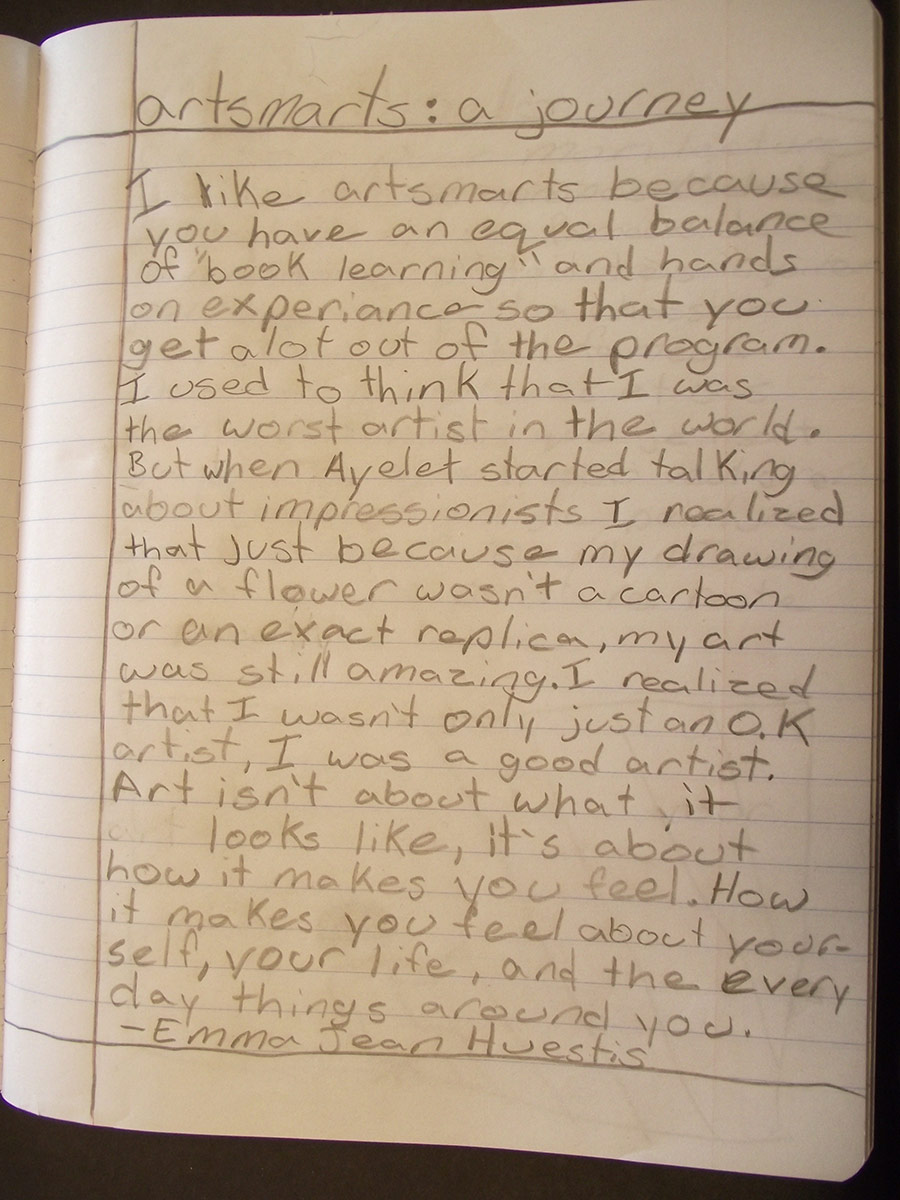 artsmarts: a journey
I like artsmarts because
you have an equal balance
of "book learning" and hands
on experiance so that you
get alot out of the program.
I used to think that I was
the worst artist in the world.
But when Ayelet started talking
about impressionists I realized
that just because my drawing
of a flower wasn't a cartoon
or an exact replica, my art
was still amazing. I realized
that I wasn't only just an O.K
artist, I was a good artist.
Art isn't about what it
looks like, it's about
how it makes you feel. How
it makes you feel about your-
self, your life, and the every
day things around you.
-Emma Jean Huestis